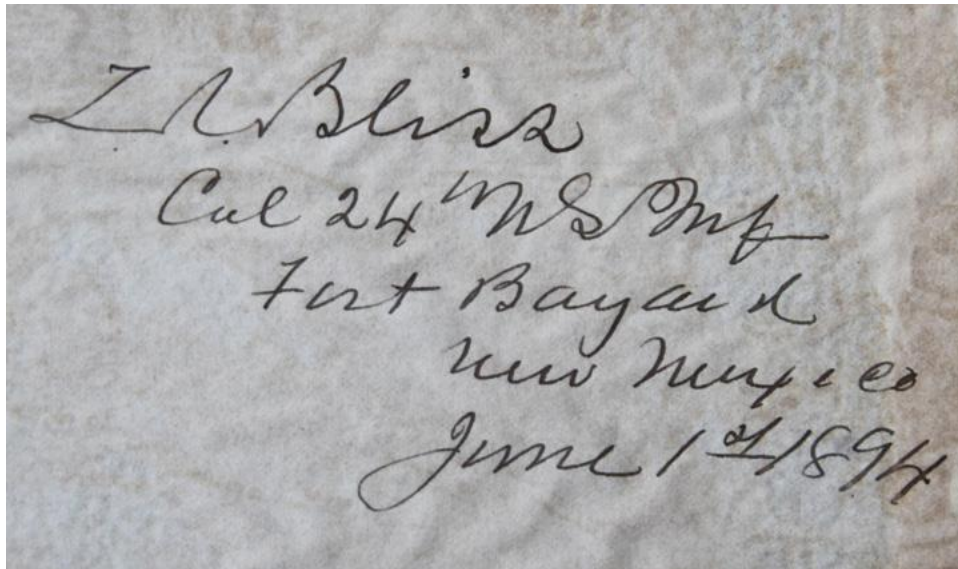 Z R Bliss
Col 24th US Inf
Fort Bayard
New Mexico
June 1st 1894